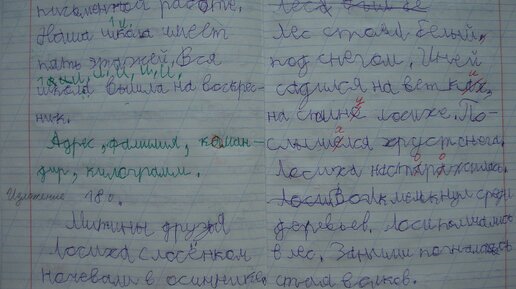 письменной работе.
Наша школа имеет
пять этажей. Вся
школа вышла на воскрес-
ник.
Адрес, фамилия, коман-
дир, килограмм.
Изложение 18 о.
Митины друзья
Лосиха слосёнком
ночевали в осиннике.
Лес стоял, белый,
под снегом. Иней
садился на ветках,
на спине лосихе. По-
слышелся хруст снега.
Лосиха насторожилась.
Волк мелькнул среди
деревьев. Лоси помчались
в лес. За ними погналась
стая волков.